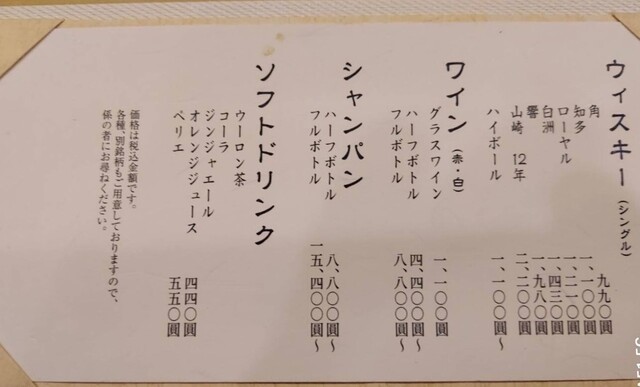 ウィスキー(シングル)
角 九九〇圓
知多 一、一〇〇圓
ローヤル 一、二一〇圓
白洲 一、四三〇圓
響 一、九八〇圓
山崎 12年 二、二〇〇圓
ハイボール 一、一〇〇圓〜
ワイン(赤・白)
グラスワイン 一、一〇〇圓
ハーフボトル 四、四〇〇圓〜
フルボトル 八、八〇〇圓〜
シャンパン
ハーフボトル 八、八〇〇圓〜
フルボトル 一五、四〇〇圓〜
ソフトドリンク
ウーロン茶
コーラ
ジンジャエール
オレンジジュース 四四〇圓
ペリエ 五五〇圓
価格は税込金額です。
各種、別銘柄もご用意しておりますので、
係の者にお尋ねください。